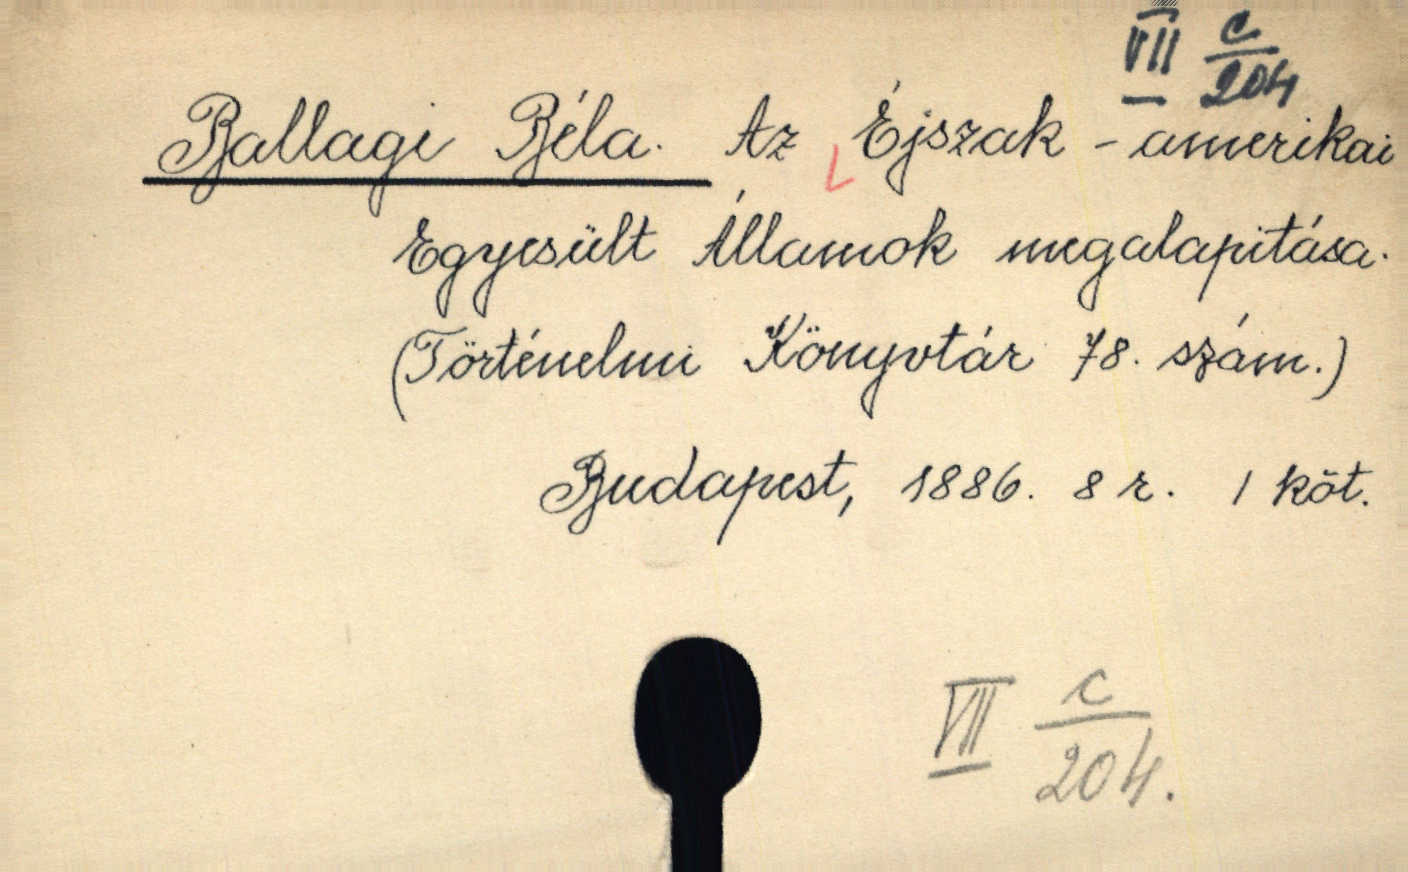 VII c/204
Ballagi Béla. Az Éjszak-amerikai
Egyesült Államok megalapitása.
(Történelmi Könyvtár 78. szám.)
Budapest, 1886. 8 r. 1 köt.
VII c/204.